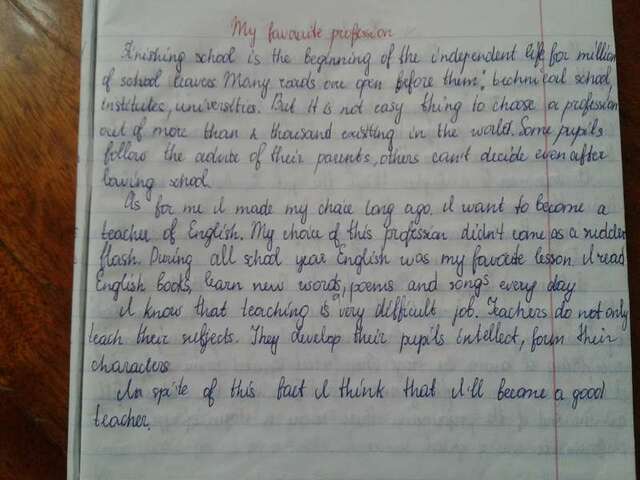 My favourite profession
Finishing school is the beginning of the independent life for million
of school leaves. Many roads are open before them: technical school,
institutes, universities. But it is not easy thing to choose a profession
out of more than a thousand existing in the world. Some pupils
follow the advice of their parents, others can't decide even after
leaving school.
As for me I made my choice long ago. I want to become a
teacher of English. My choice of this profession didn't come as a sudden
flash. During all school year English was my favorite lesson. I read
English books, learn new words, poems and songs every day
I know that teaching is a very difficult job. Teachers do not only
teach their subjects. They develop their pupils intellect, form their
characters
In spite of this fact I think that I'll become a good
teacher.